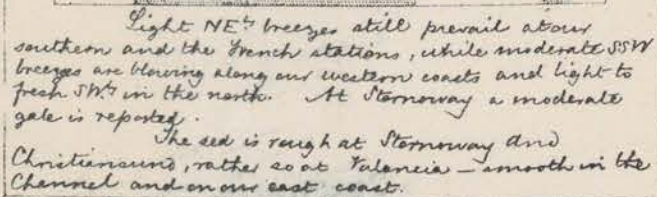 Light NEly breezes still prevail at our
southern and the French stations, while moderate SSW
breezes are blowing along our western coasts and light to
fresh SWly in the north. At Stornoway a moderate
gale is reported.
The sea is rough at Stornoway and
Christiansund, rather so at Valencia – smooth in the
Channel and on our east coast.